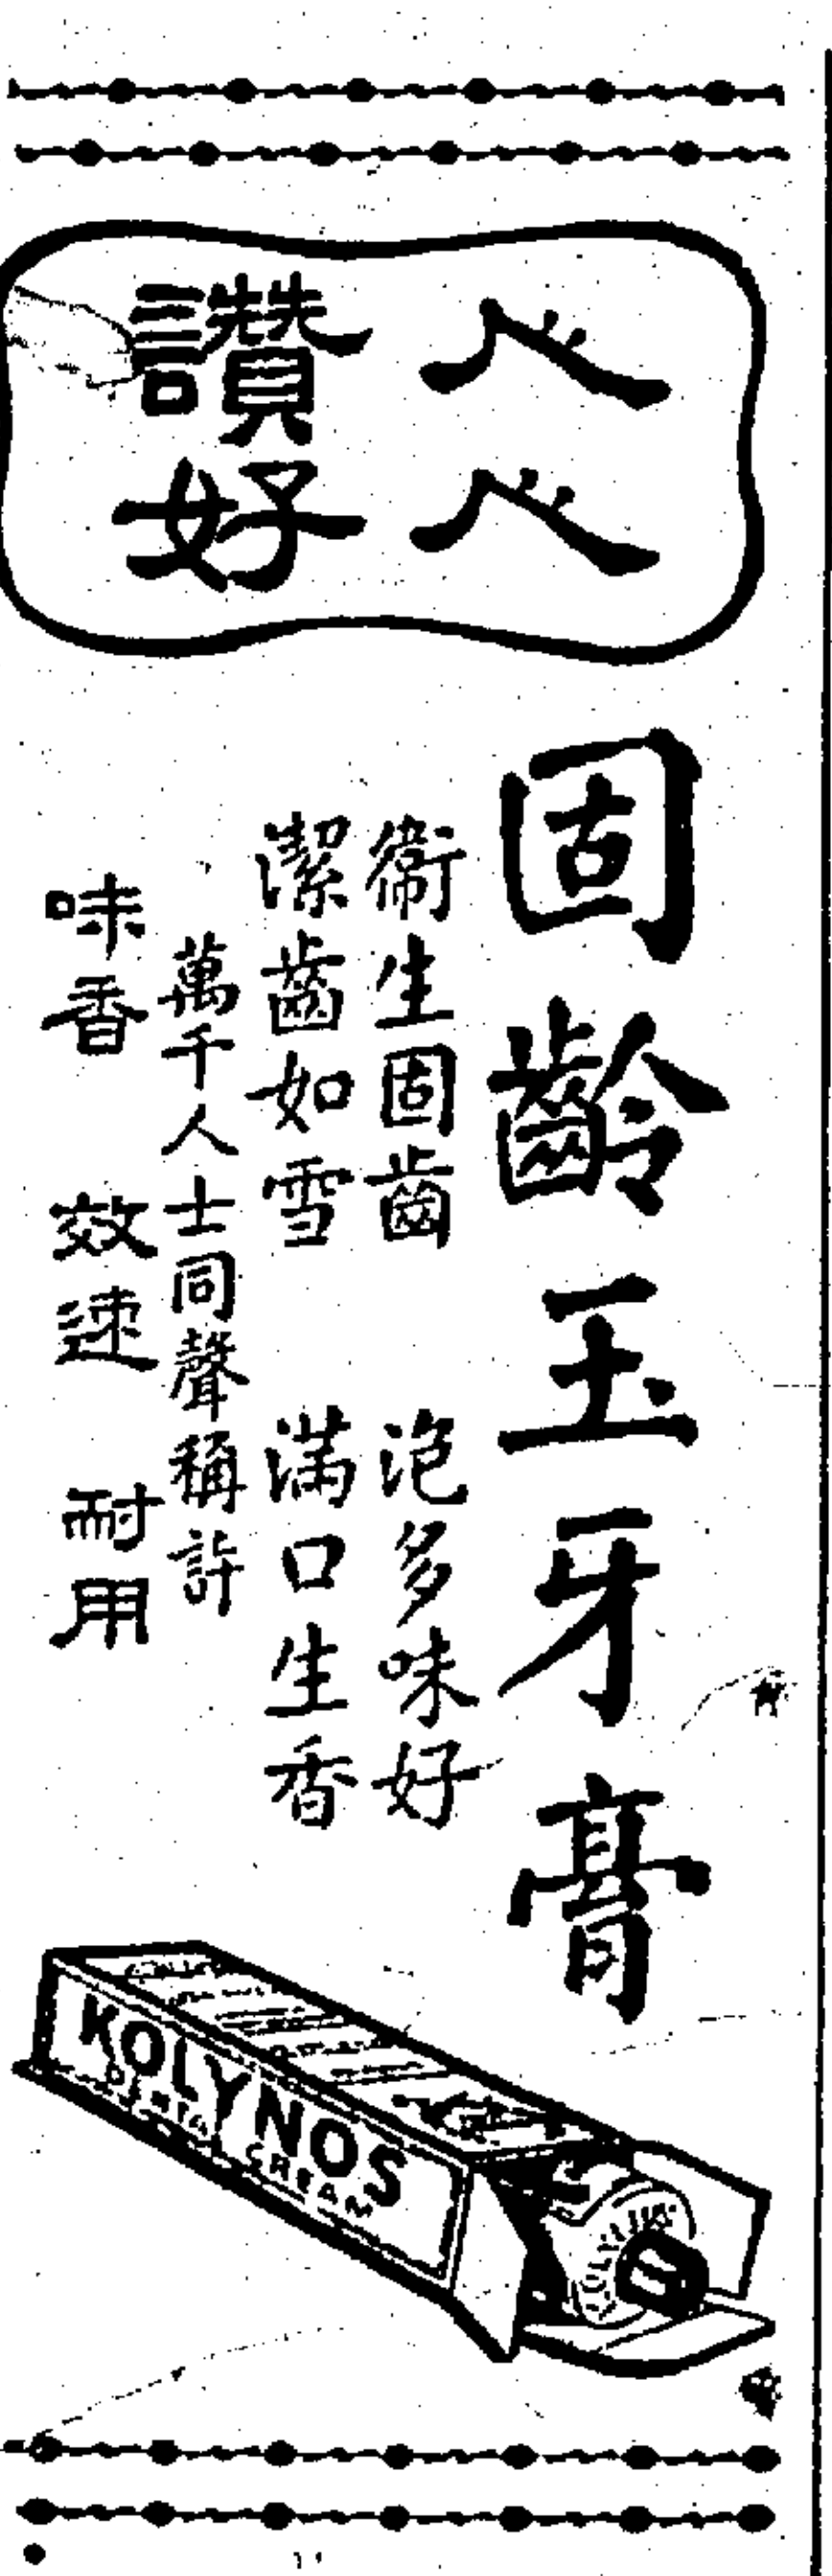 人人
讚好
固齡玉牙膏
衞生固齒 泡多味好
潔齒如雪 滿口生香
萬千人士同聲稱許
味香 效速 耐用
KOLYNOS
DENTAL CREAM
KOLYNOS